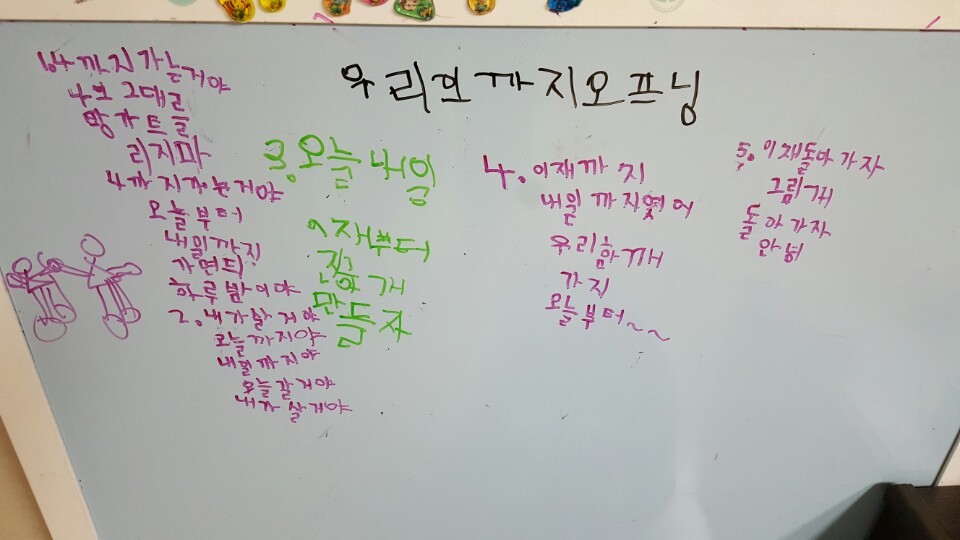 우리의까지오프닝
1.4까지가는거야
4의 그대를
망가트를
리지마
4까지가는거야
오늘부터
내일까지
가면되
하루밤이야
2.내가살거야
오늘까지야
내일까지야
오늘갈거야
내가살거야
3.오늘
이재부터
만들자
4.이재까지
내일까지였어
우리는함께
가지
오늘부터~~
5.이재돌아가자
그립게
돌아가자
안녕